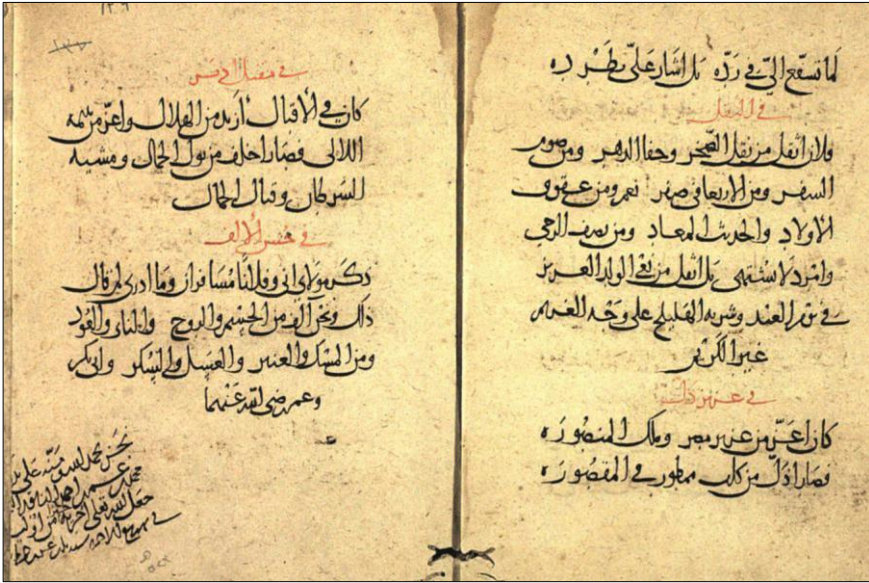 لما تسفع اليّ في ردّه بل اشار علىّ بطرده
في الثقل
فلان اثقل من نقل الصخر وجفا الدهر ومن صوم
السفر ومن الاربعا في صفر نعم ومن عقوق
الاولاد والحديث المعاد ومن نصف الرحى
لا تشتهى بل اثقل من نعى الولد العزيز
في يوم العيد وشربه الهليلج على وجه الغريم
غير الكريم
في عزيز ذل
كان اعزّ من عزيز مصر وملك المنصوره
فصار اذلّ من كلب ممطور في المقصوره
١٢٦
في مقبل ادبر
كان في الاقبال ازيد من الهلال واعزّ من يتيمه
اللالى فصار اخلف من بول الجمال ومشيه
السرطان وقبال
في حسن الالف
ذكر مولاى انى وفلانا مسافران وما ادرى لم قال
ذلك ونحن آلف من الجسم والروح والنار والعود
ومن المسك والعنبر والعسل والسكر وابى بكر
وعمر رضى الله عنهما